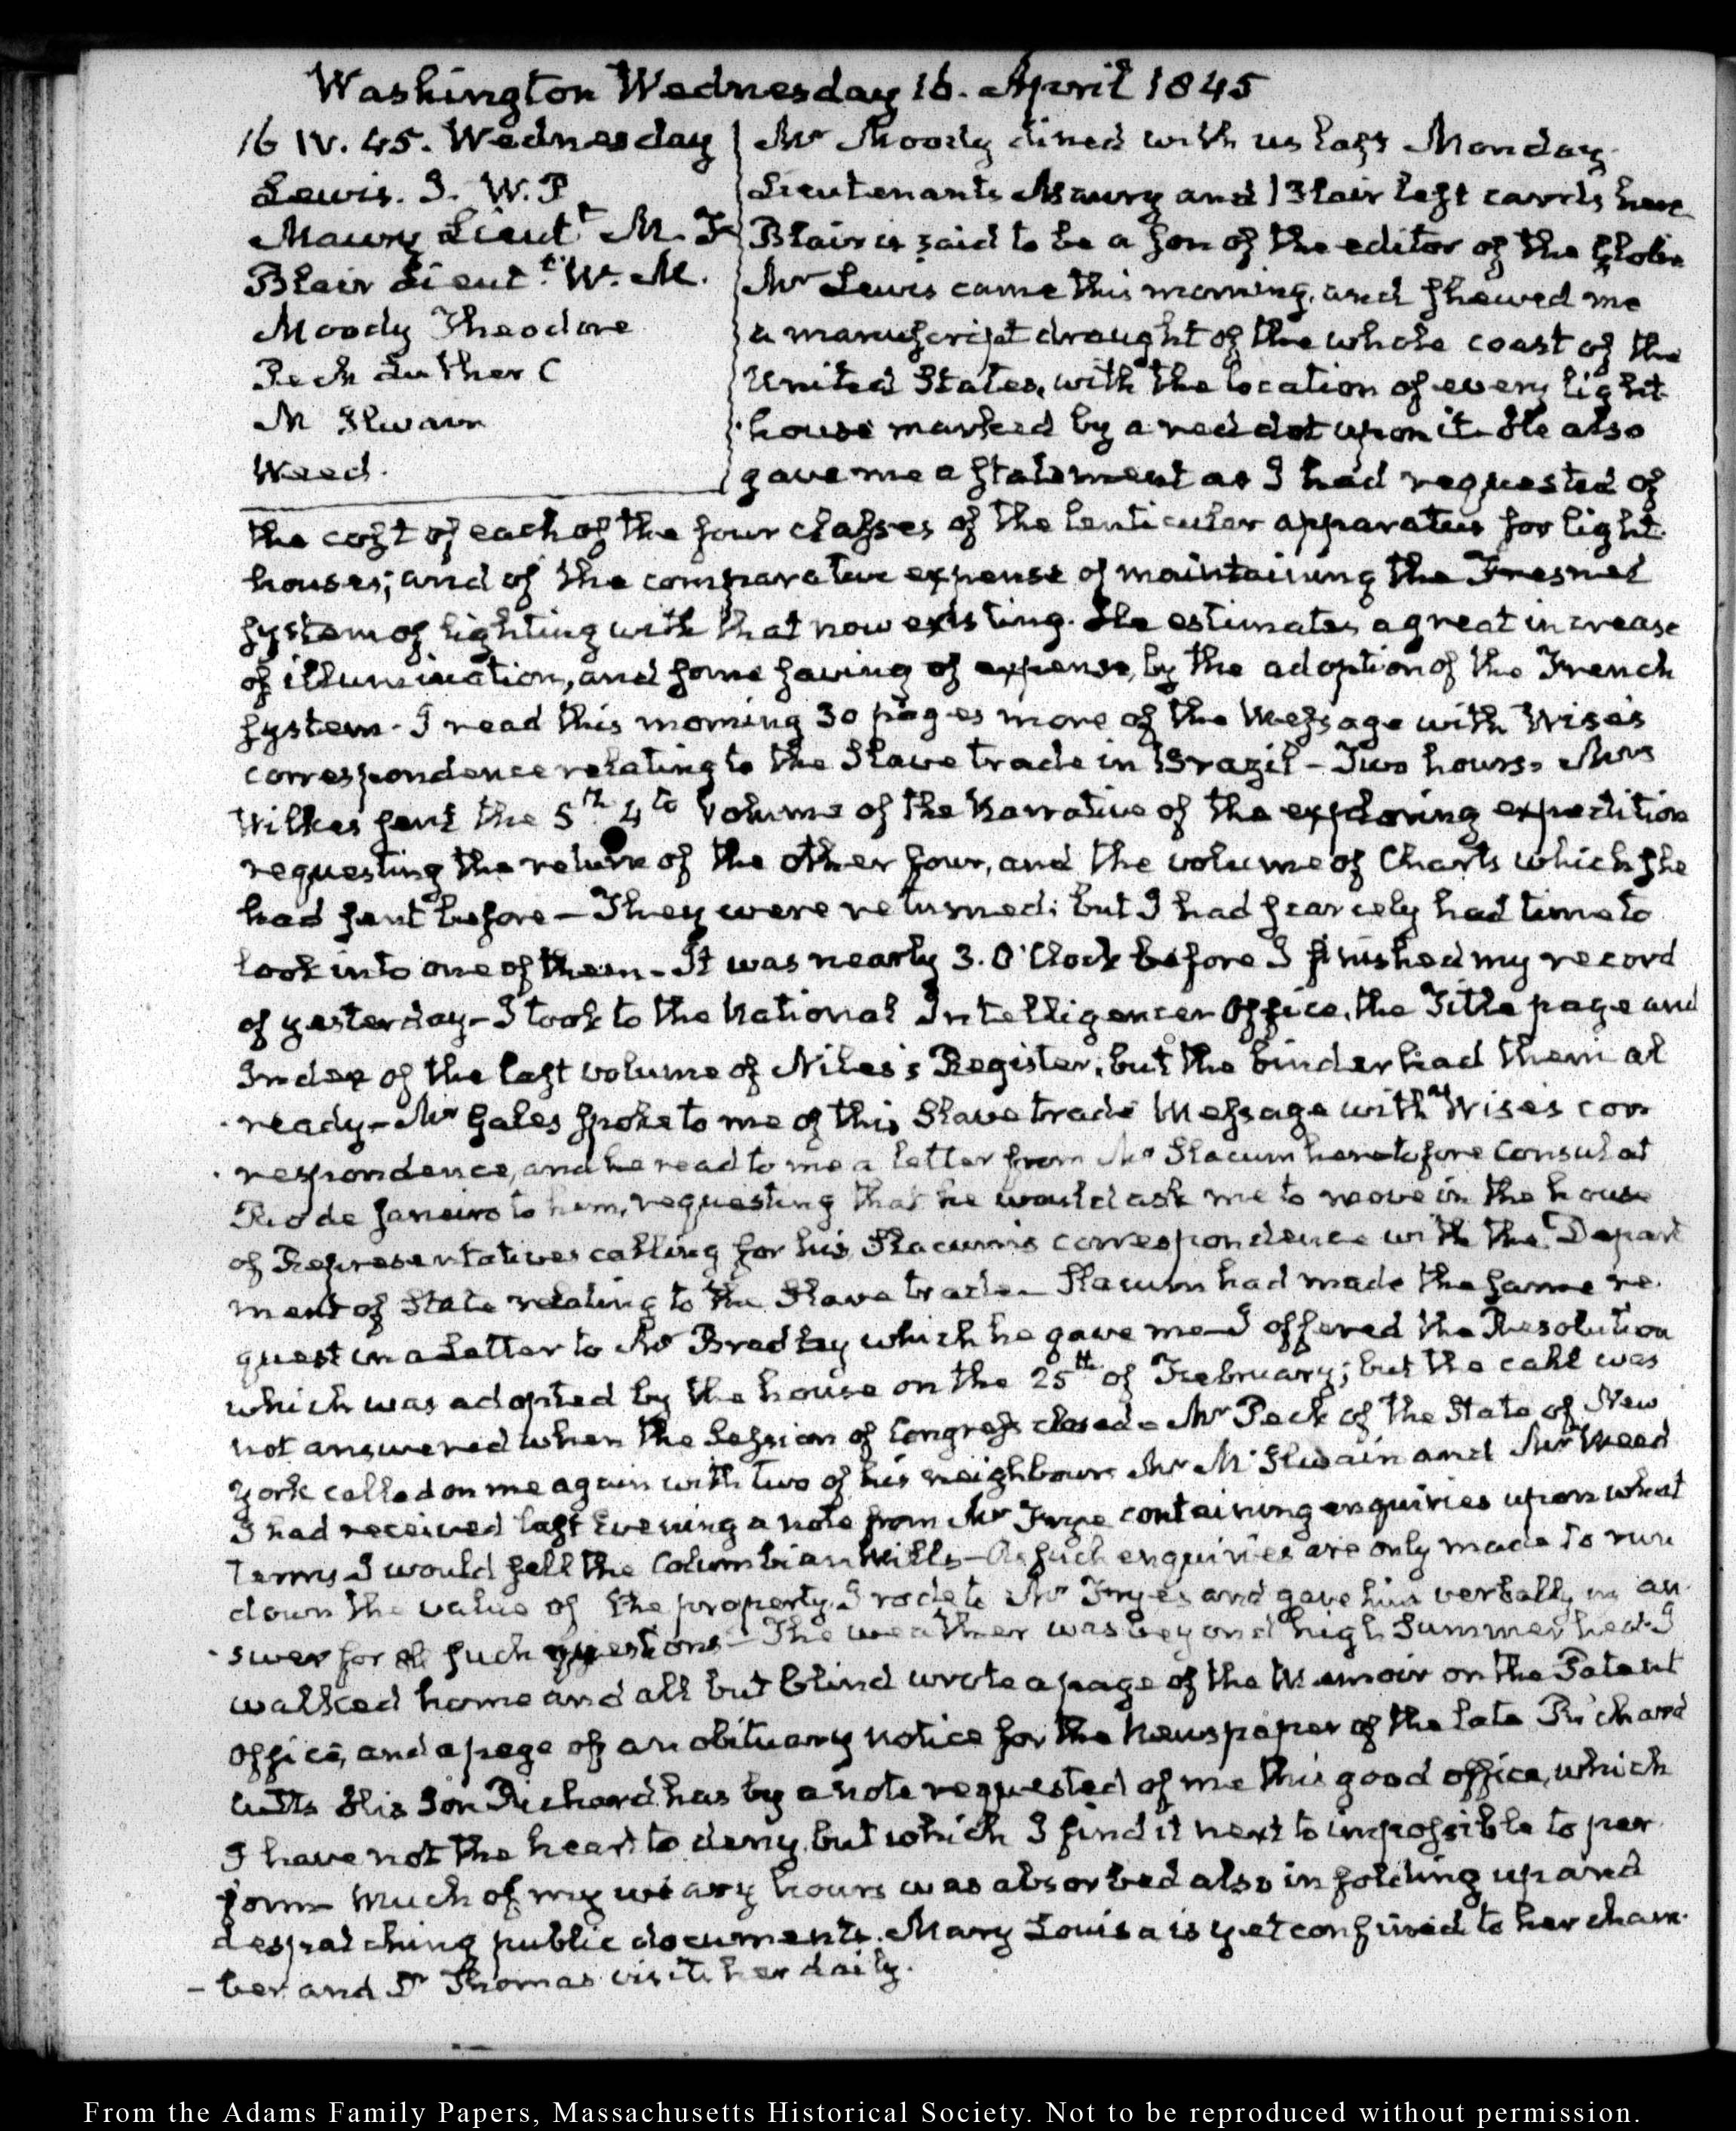 Washington Wednesday 16. April 1845
16 IV. 45. Wednesday
Lewis. I. W. P
Maury Lieutt M. F
Blair Lieut.t W. M.
Moody Theodore
Peck Luther C
McIlwain
Weed.
Mr Moody dined with us last Monday
Lieutenants Maury and Blair left cards here
Blair is said to be a son of the editor of the Globe
Mr Lewis came this morning, and shewed me
a manuscript draught of the whole coast of the
United States, with the location of every light
house marked by a red dot upon it. He also
gave me a statement as I had requested of
the cost of each of the four classes of the lenticular apparatus for light
houses; and of the comparative expense of maintaining the Fresnel
system of lighting with that now existing. He estimates a great increase
of illumination, and some saving of expense, by the adoption of the French
system - I read this morning 30 pages more of the Message with Wise's
correspondence relating to the Slave trade in Brazil - Two hours. Mrs
Wilkes sent the 5th 4to Volume of the Narrative of the exploring expedition
requesting the return of the other four, and the volume of Charts which she
had sent before - They were returned; but I had scarcely had time to
look into one of them - It was nearly 3. O'Clock before I finished my record
of yesterday - I took to the National Intelligencer Office, the Title page and
Index of the last volume of Niles's Register; but the binder had them al
ready - Mr Gales spoke to me of this Slave trade Message with Wise's cor
respondence, and he read to me a letter from Mr Slacum heretofore Consul at
Rio de Janeiro to him, requesting that he would ask me to move in the house
of Representatives calling for his, Slacum's correspondence with the Depart
ment of State relating to the Slave trade - Slacum had made the same re
quest in a Letter to Mr Bradley which he gave me - I offered the Resolution
which was adopted by the house on the 25th of February; but the call was
not answered when the Session of Congress closed - Mr Peck of the State of New
York called on me again with two of his neighbours Mr McIlwain and Mr Weed
I had received last Evening a note from Mr Frye containing enquiries upon what
terms I would sell the Columbian Mills - As such enquiries are only made to run
down the value of the property, I rode to Mr Frye's and gave him verbally my an
swer for all such questions - The weather was beyond high Summer heat. I
walked home and all but blind wrote a page of the Memoir on the Patent
office, and a page of an obituary notice for the Newspaper of the late Richard
Cutts His Son Richard has by a note requested of me this good office, which
I have not the heart to deny, but which I find it next to impossible to per
form - Much of my weary hours was absorbed also in folding up and
despatching public documents. Mary Louisa is yet confined to her cham
-ber and Dr Thomas visits her daily.
From the Adams Family Papers, Massachusetts Historical Society. Not to be reproduced without permission.